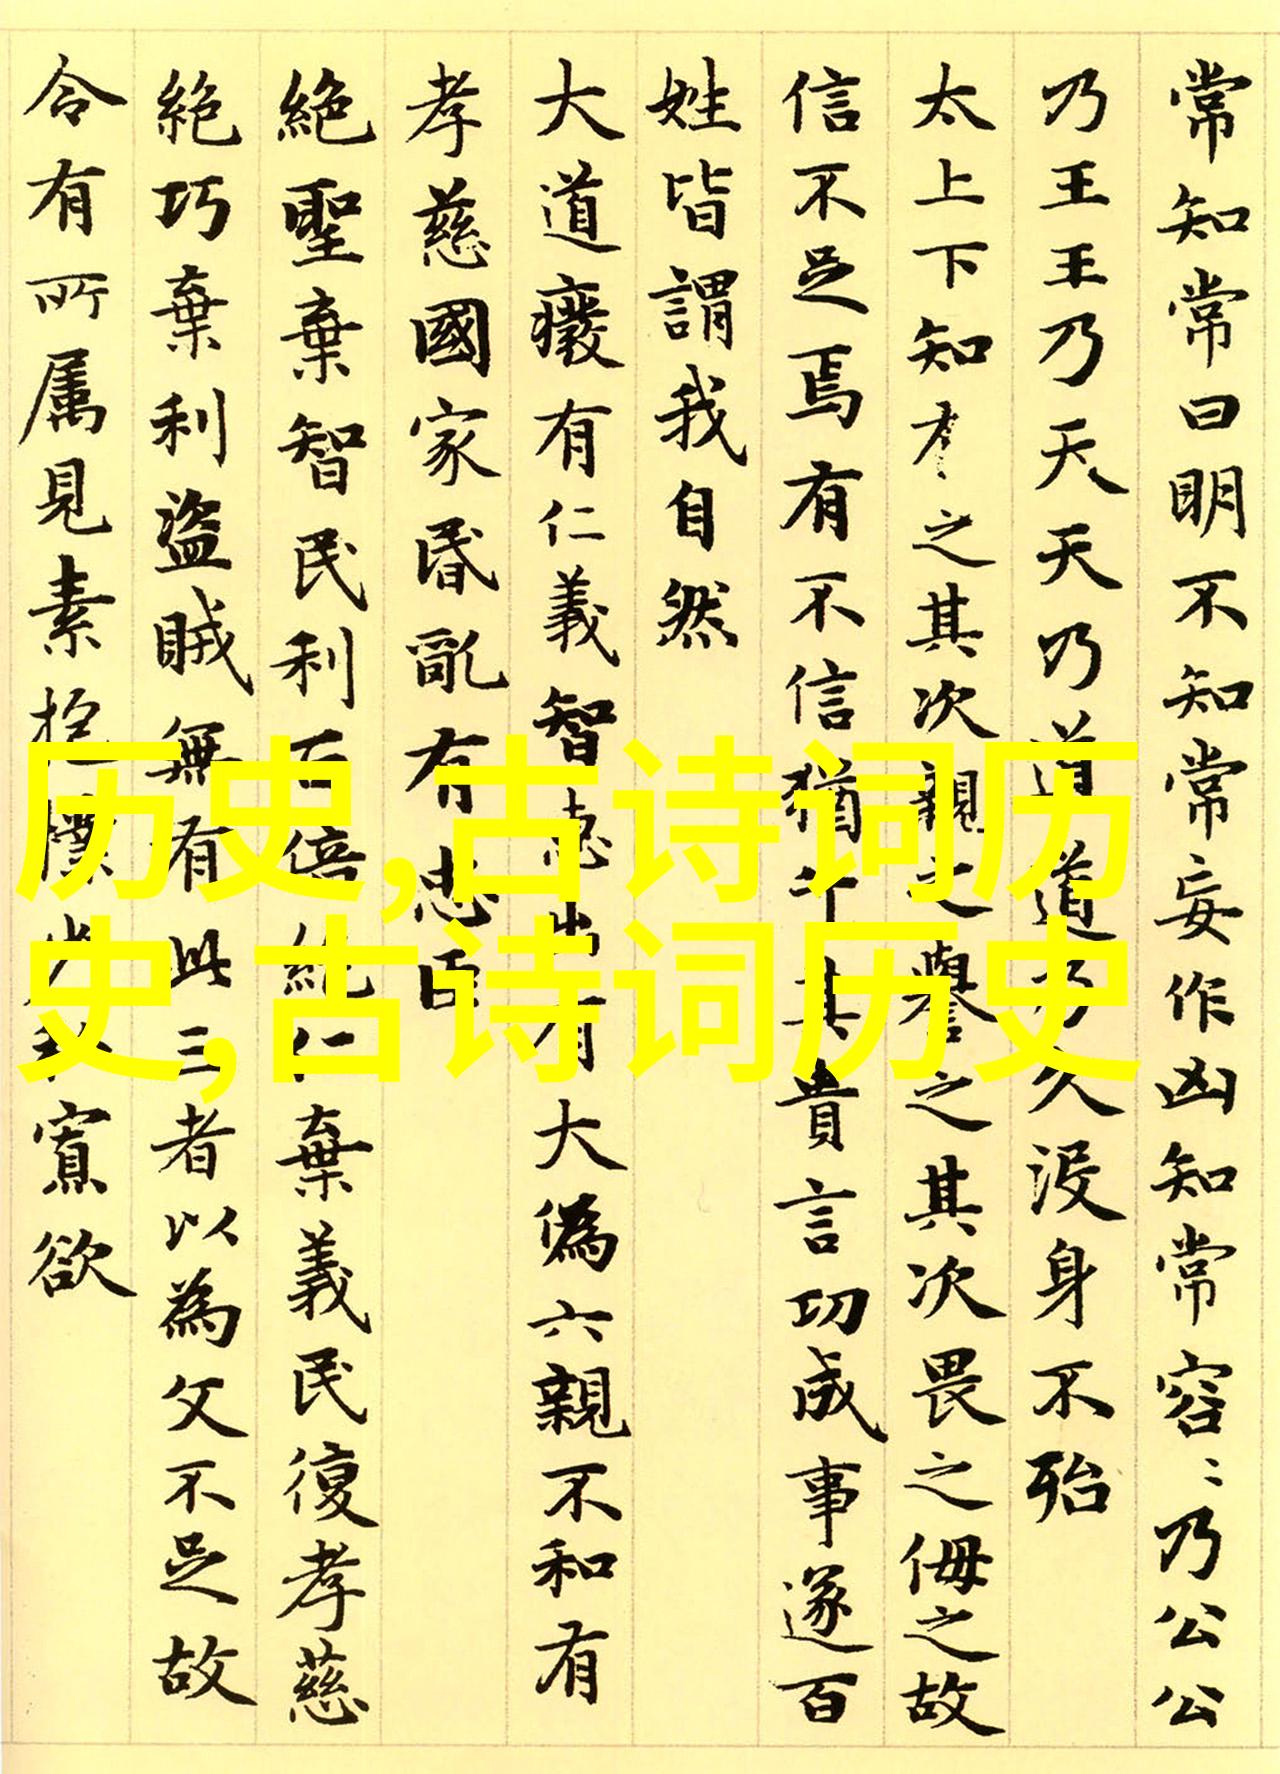 常知常曰明不知知常妄作凶知常容〻乃公公
乃王王乃天天乃道道乃久没身不殆
太上下知有之其次親之譽之其次畏之侮之故
信不足焉有不信猶其貴言功成事遂百
姓皆謂我自然
大道癈有仁義智惠出有大偽六親不和有
孝慈國家昏亂有忠臣
絕聖棄智民利百倍絕仁棄義民復孝慈
絕巧棄利盜賊無有此三者以為文不足故
令有所属見素抱樸少寡欲
历史,古诗词历
史,古诗词历史